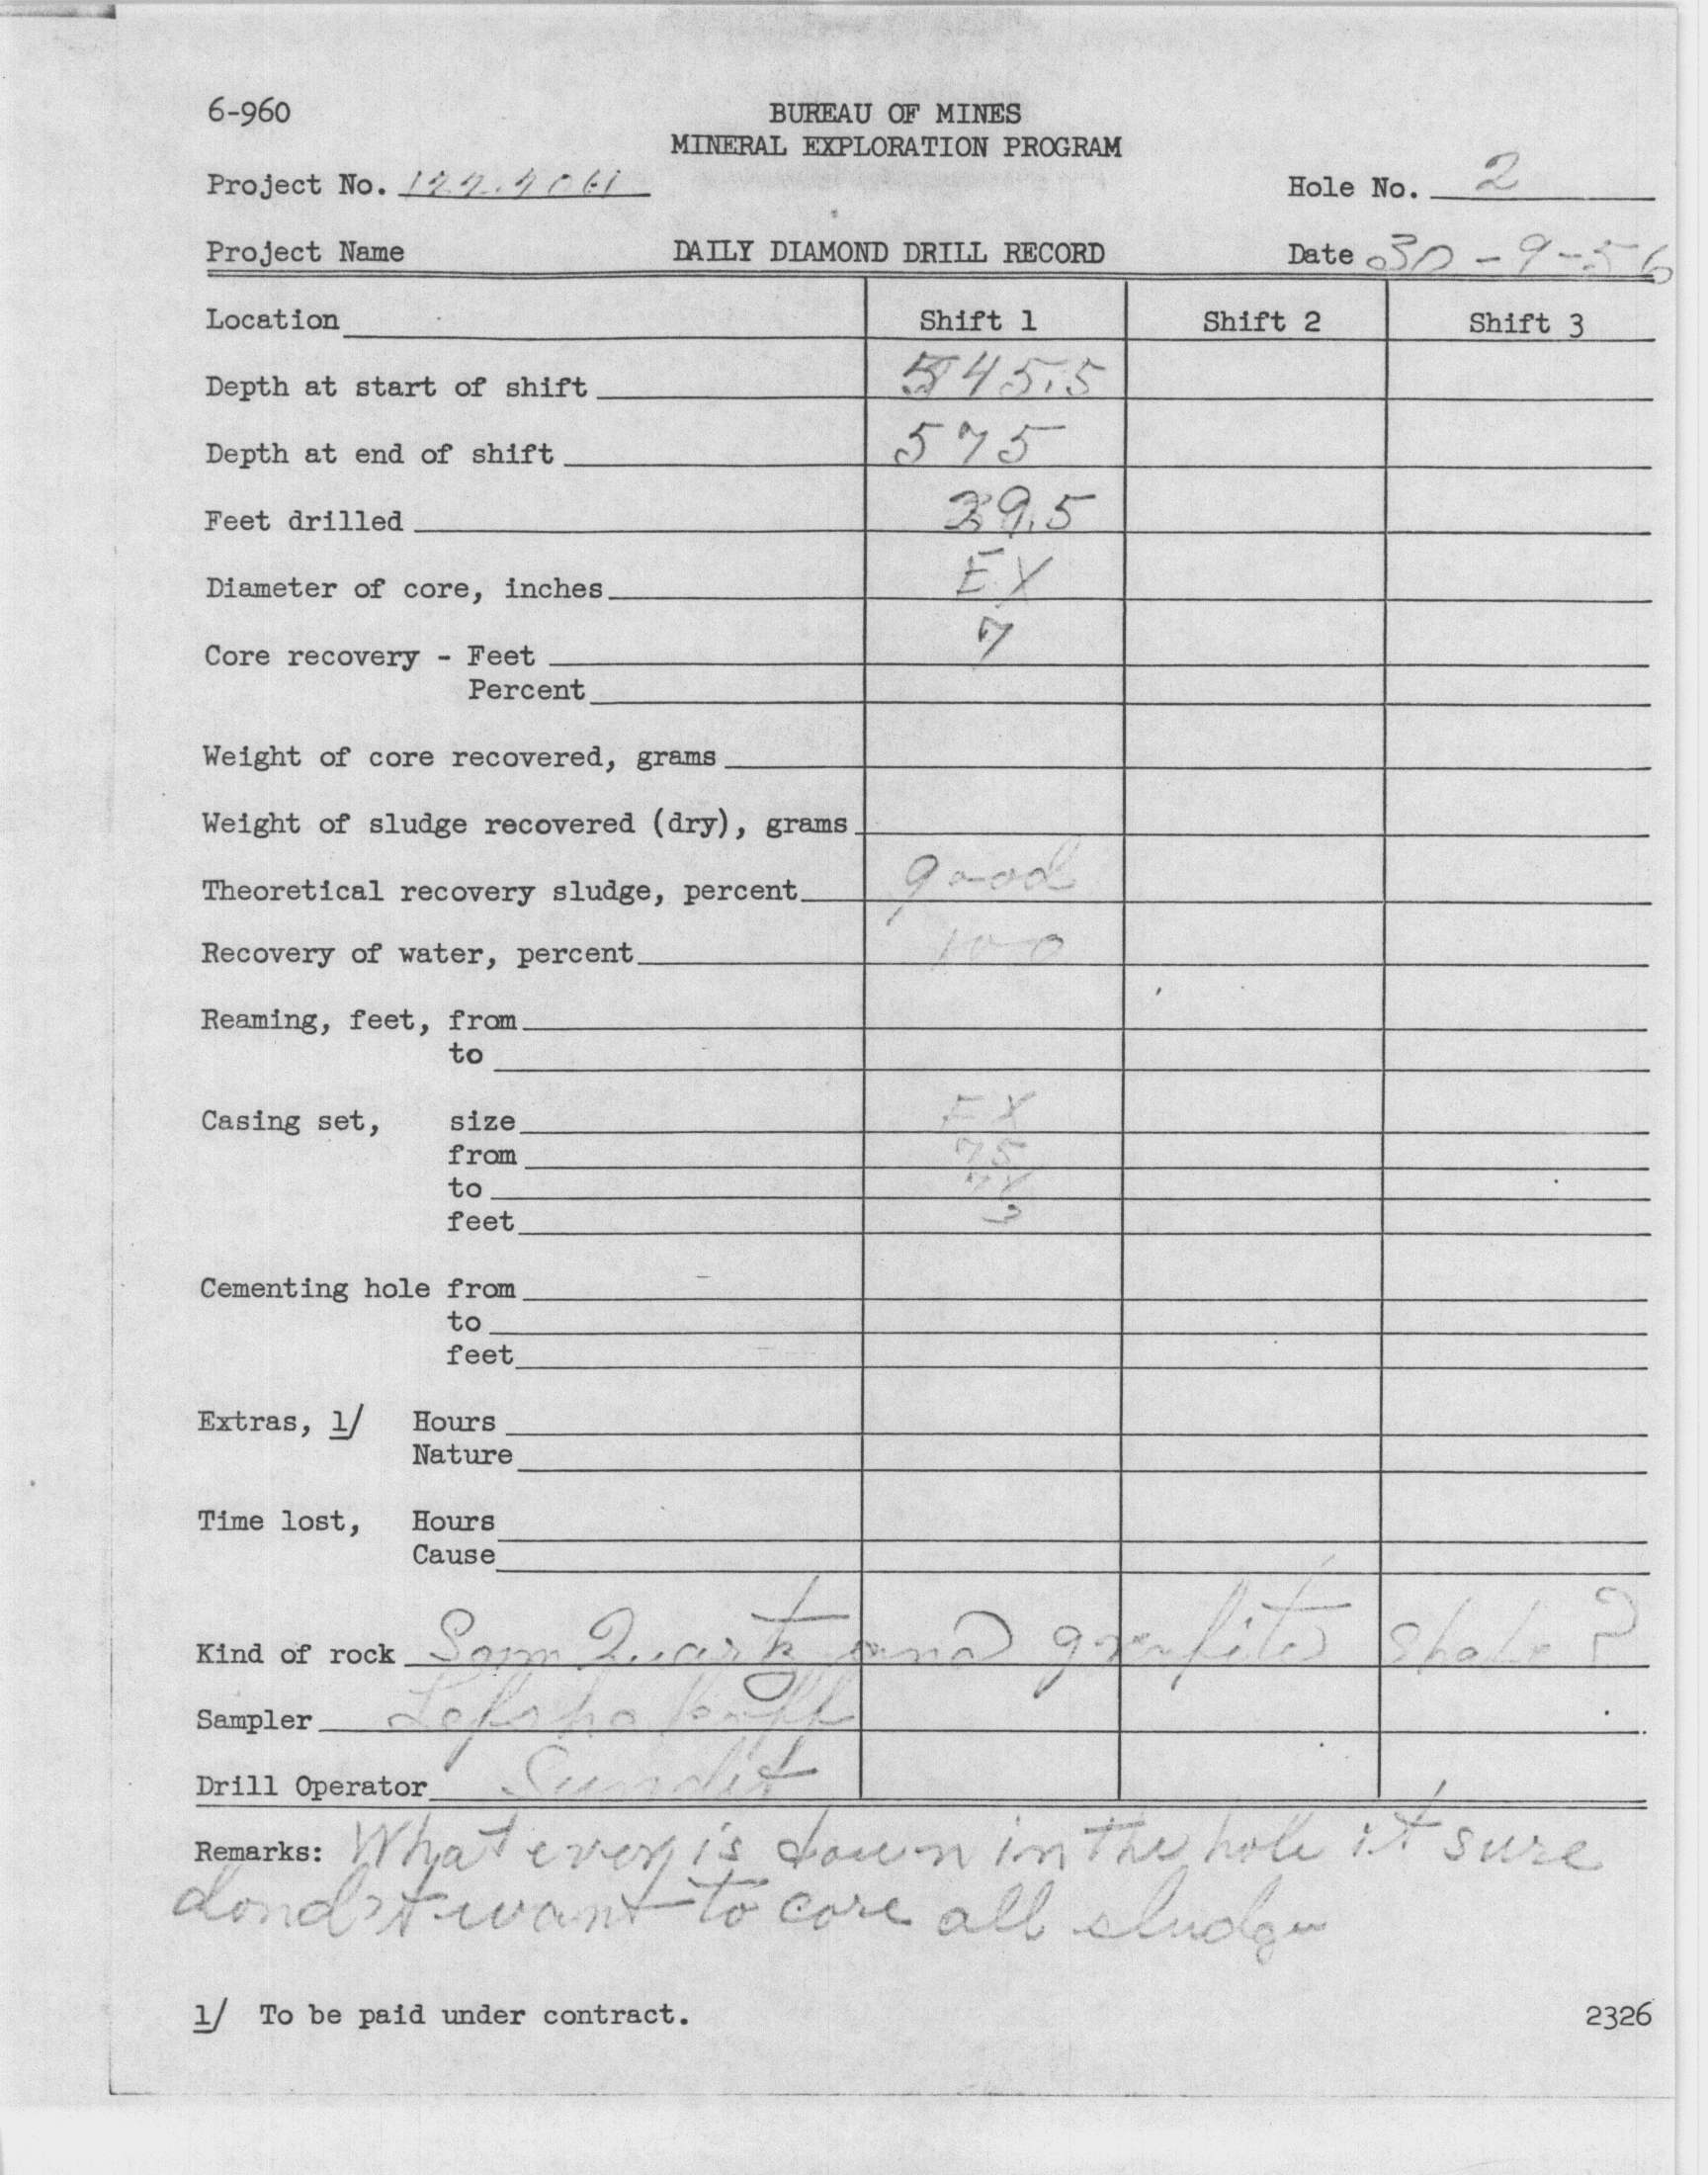 6-960
BUREAU OF MINES
MINERAL EXPLORATION PROGRAM
Project No. Hole No. 2
Project Name DAILY DIAMOND DRILL RECORD Date 30-9-56
Location Shift 1 Shift 2 Shift 3
Depth at start of shift 545.5
Depth at end of shift 575
Feet drilled 29.5
Diameter of core, inches EX
Core recovery - Feet 7
Percent
Weight of core recovered, grams
Weight of sludge recovered (dry), grams
Theoretical recovery sludge, percent good
Recovery of water, percent 100
Reaming, feet, from
to
Casing set, size EX
from 75
to 78
feet 3
Cementing hole from
to
feet
Extras, 1/ Hours
Nature
Time lost, Hours
Cause
Kind of rock Som Quartz and shale?
Sampler
Drill Operator
Remarks: What ever is down in the hole it sure
dond't want to core all sludge
1/ To be paid under contract.
2326